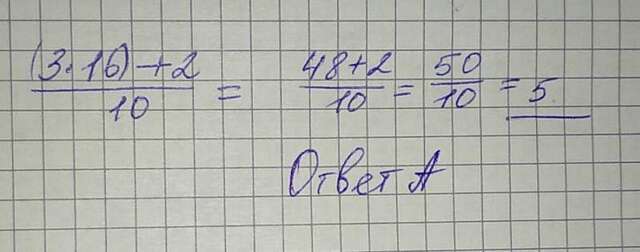 (3·16)+2/10 = 48+2/10 = 50/10 = 5
Ответ А